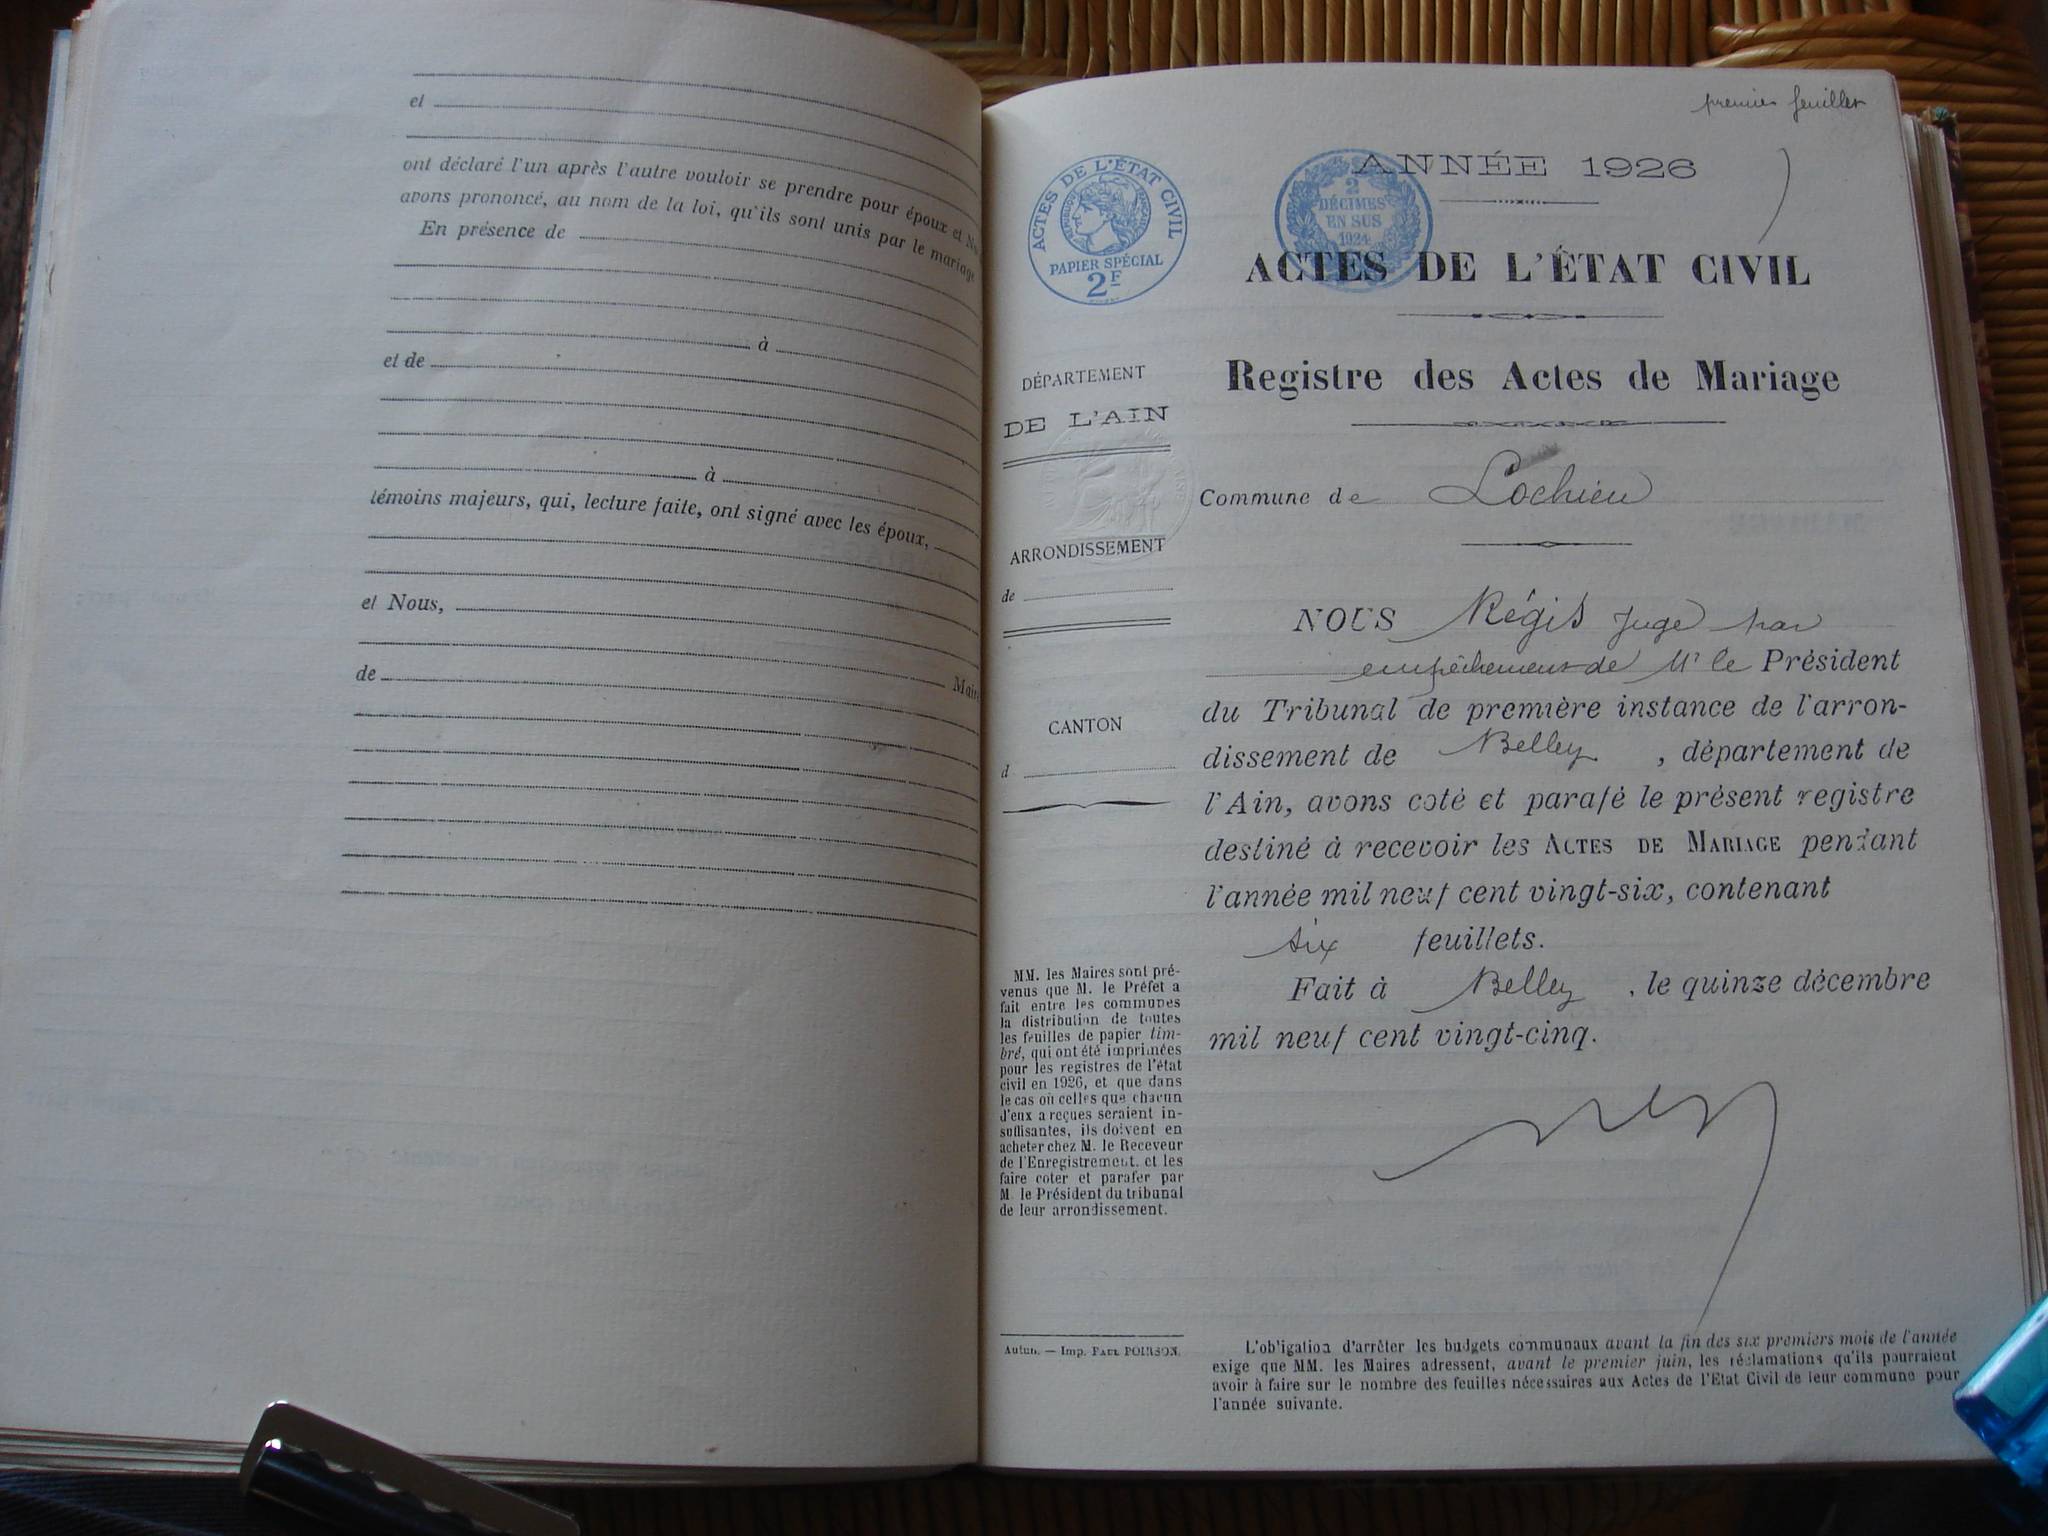 et
ont déclaré l'un après l'autre vouloir se prendre pour époux et
avons prononcé, au nom de la loi, qu'ils sont unis par le mariage
En présence de
à
et de
à
témoins majeurs, qui, lecture faite, ont signé avec les époux,
et Nous,
de Maire
premier feuillet
ANNÉE 1926
ACTES DE L'ÉTAT CIVIL
RÉPUBLIQUE FRANÇAISE
PAPIER SPÉCIAL
2F
2
DÉCIMES
EN SUS
1924
ACTES DE L'ÉTAT CIVIL
Registre des Actes de Mariage
DÉPARTEMENT
DE L'AIN
ARRONDISSEMENT
de
CANTON
d
MM. les Maires sont pré-
venus que M. le Préfet a
fait entre les communes
la distribution de toutes
les feuilles de papier tim-
bré, qui ont été imprimées
pour les registres de l'état
civil en 1926, et que dans
le cas où celles que chacun
d'eux a reçues seraient in-
suffisantes, ils doivent en
acheter chez M. le Receveur
de l'Enregistrement, et les
faire coter et parafer par
M. le Président du tribunal
de leur arrondissement.
Autun. — Imp. PAUL POIRSON.
Commune de Lochieu
NOUS Régis Juge par
empêchement de Mr le Président
du Tribunal de première instance de l'arron-
dissement de Belley, département de
l'Ain, avons coté et parafé le présent registre
destiné à recevoir les ACTES DE MARIAGE pendant
l'année mil neuf cent vingt-six, contenant
six feuillets.
Fait à Belley, le quinze décembre
mil neuf cent vingt-cinq.
L'obligation d'arrêter les budgets communaux avant la fin des six premiers mois de l'année
exige que MM. les Maires adressent, avant le premier juin, les réclamations qu'ils pourraient
avoir à faire sur le nombre des feuilles nécessaires aux Actes de l'Etat Civil de leur commune pour
l'année suivante.